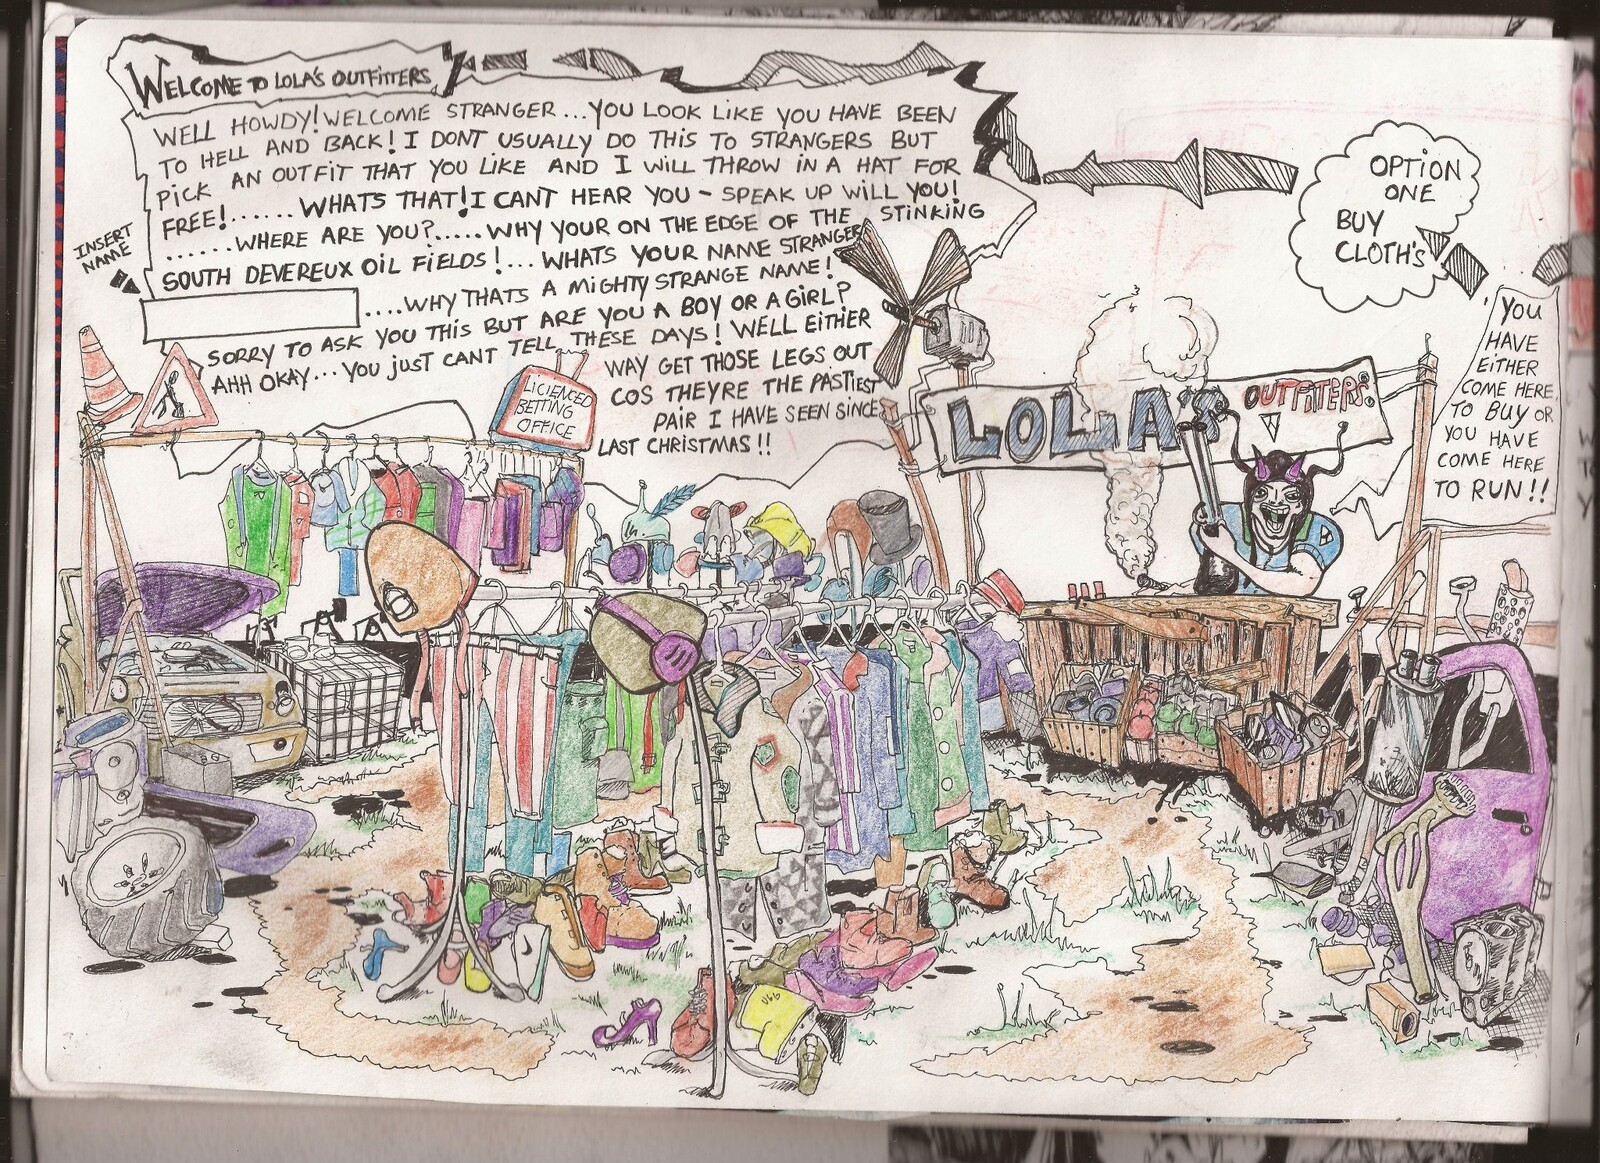 WELCOME TO LOLA'S OUTFITTERS
WELL HOWDY! WELCOME STRANGER... YOU LOOK LIKE YOU HAVE BEEN
TO HELL AND BACK! I DONT USUALLY DO THIS TO STRANGERS BUT
PICK AN OUTFIT THAT YOU LIKE AND I WILL THROW IN A HAT FOR
FREE!...... WHATS THAT! I CANT HEAR YOU - SPEAK UP WILL YOU!
......WHERE ARE YOU?..... WHY YOUR ON THE EDGE OF THE STINKING
SOUTH DEVEREUX OIL FIELDS!... WHATS YOUR NAME STRANGER
INSERT
NAME
....WHY THATS A MIGHTY STRANGE NAME!
SORRY TO ASK YOU THIS BUT ARE YOU A BOY OR A GIRL?
AHH OKAY... YOU JUST CANT TELL THESE DAYS! WELL EITHER
WAY GET THOSE LEGS OUT
COS THEYRE THE PASTIEST
PAIR I HAVE SEEN SINCE
LAST CHRISTMAS!!
LICIENCED
BETTING
OFFICE
LOLA'S OUTFITTERS
OPTION
ONE
BUY
CLOTH'S
YOU
HAVE
EITHER
COME HERE
TO BUY OR
YOU HAVE
COME HERE
TO RUN!!